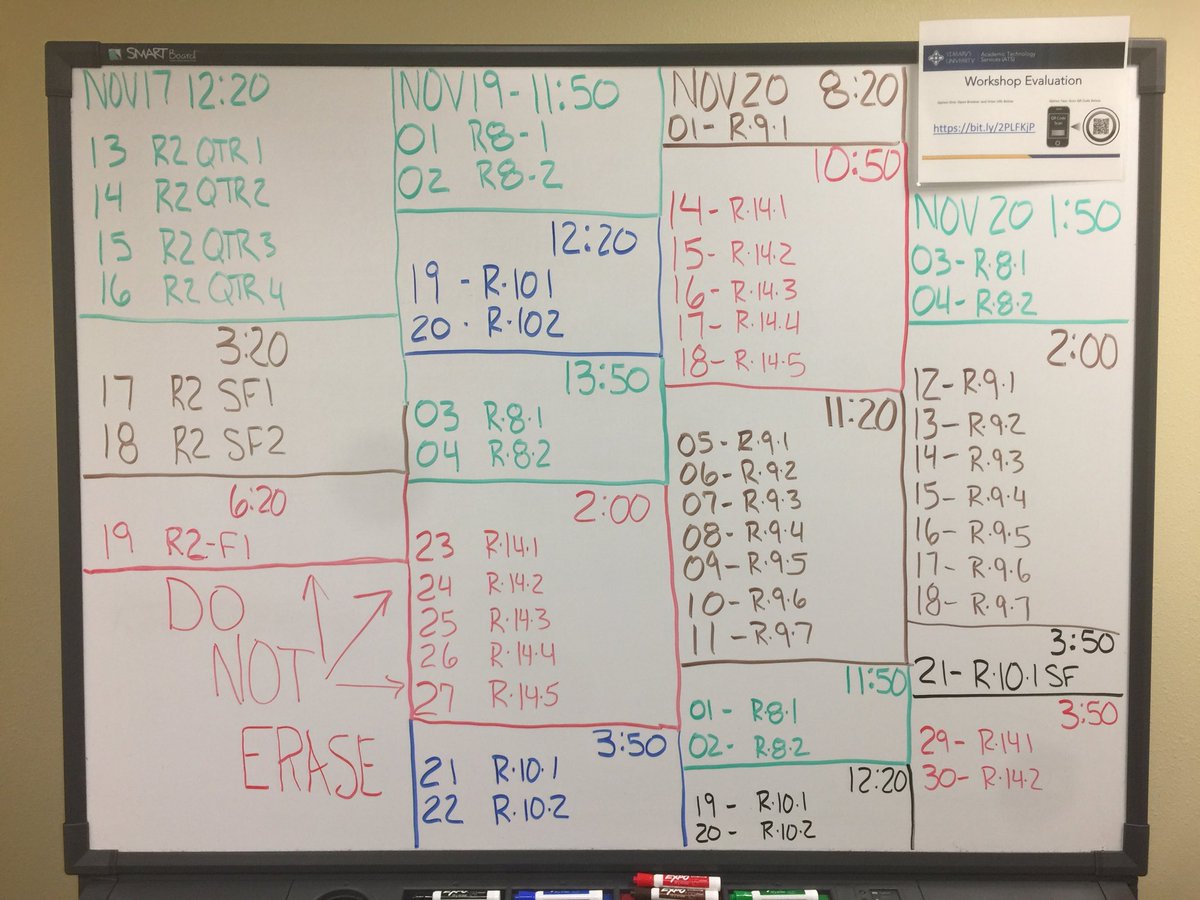 SMART Board
NOV17 12:20
13 R2 QTR1
14 R2 QTR2
15 R2 QTR3
16 R2 QTR4
3:20
17 R2 SF1
18 R2 SF2
6:20
19 R2-F1
DO
NOT
ERASE
NOV19-11:50
01 R8-1
02 R8-2
12:20
19 - R·101
20 · R·102
13:50
03 R·8·1
04 R·8·2
2:00
23 R·14·1
24 R·14·2
25 R·14·3
26 R·14·4
27 R·14·5
3:50
21 R·10·1
22 R·10·2
NOV20 8:20
01- R·9·1
10:50
14- R·14·1
15- R·14·2
16- R·14·3
17- R·14·4
18- R·14·5
11:20
05- R·9·1
06- R·9·2
07- R·9·3
08- R·9·4
09- R·9·5
10- R·9·6
11- R·9·7
11:50
01- R·8·1
02- R·8·2
12:20
19- R·10·1
20- R·10·2
ST. MARY'S UNIVERSITY
Academic Technology
Services (ATS)
Workshop Evaluation
https://bit.ly/2PLFKjP
QR Code
Scan
NOV 20 1:50
03- R·8·1
04- R·8·2
2:00
12- R·9·1
13- R·9·2
14- R·9·3
15- R·9·4
16- R·9·5
17- R·9·6
18- R·9·7
3:50
21- R·10·1 SF
3:50
29- R·141
30- R·14·2
EXPO
EXPO
EXPO
EXPO